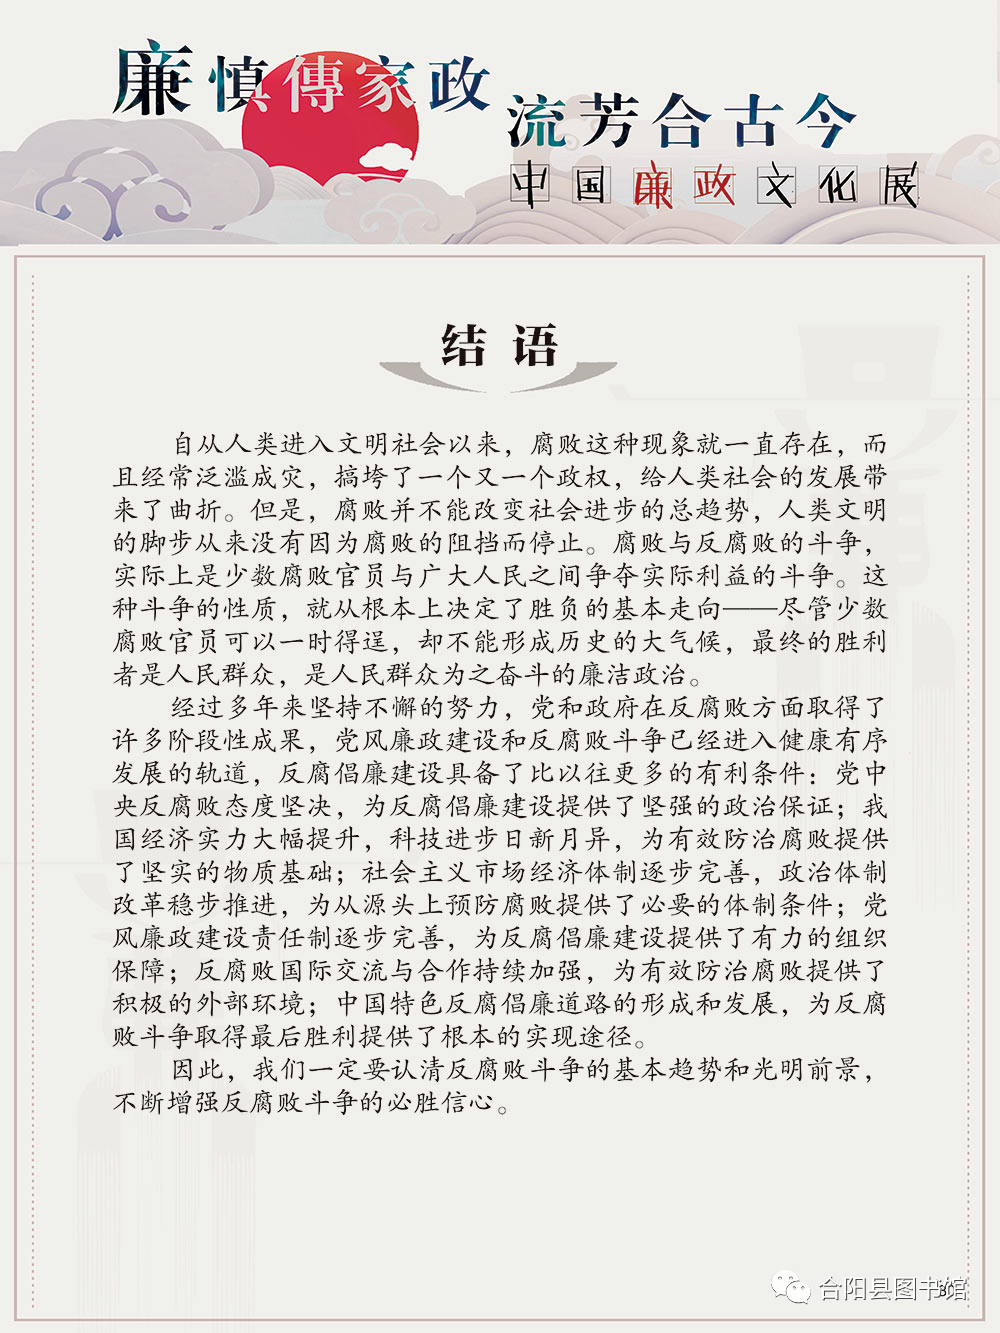 廉慎傳家政
流芳合古今
中国廉政文化展
结语
自从人类进入文明社会以来，腐败这种现象就一直存在，而
且经常泛滥成灾，搞垮了一个又一个政权，给人类社会的发展带
来了曲折。但是，腐败并不能改变社会进步的总趋势，人类文明
的脚步从来没有因为腐败的阻挡而停止。腐败与反腐败的斗争，
实际上是少数腐败官员与广大人民之间争夺实际利益的斗争。这
种斗争的性质，就从根本上决定了胜负的基本走向——尽管少数
腐败官员可以一时得逞，却不能形成历史的大气候，最终的胜利
者是人民群众，是人民群众为之奋斗的廉洁政治。
经过多年来坚持不懈的努力，党和政府在反腐败方面取得了
许多阶段性成果，党风廉政建设和反腐败斗争已经进入健康有序
发展的轨道，反腐倡廉建设具备了比以往更多的有利条件：党中
央反腐败态度坚决，为反腐倡廉建设提供了坚强的政治保证；我
国经济实力大幅提升，科技进步日新月异，为有效防治腐败提供
了坚实的物质基础；社会主义市场经济体制逐步完善，政治体制
改革稳步推进，为从源头上预防腐败提供了必要的体制条件；党
风廉政建设责任制逐步完善，为反腐倡廉建设提供了有力的组织
保障；反腐败国际交流与合作持续加强，为有效防治腐败提供了
积极的外部环境；中国特色反腐倡廉道路的形成和发展，为反腐
败斗争取得最后胜利提供了根本的实现途径。
因此，我们一定要认清反腐败斗争的基本趋势和光明前景，
不断增强反腐败斗争的必胜信心。
合阳县图书馆